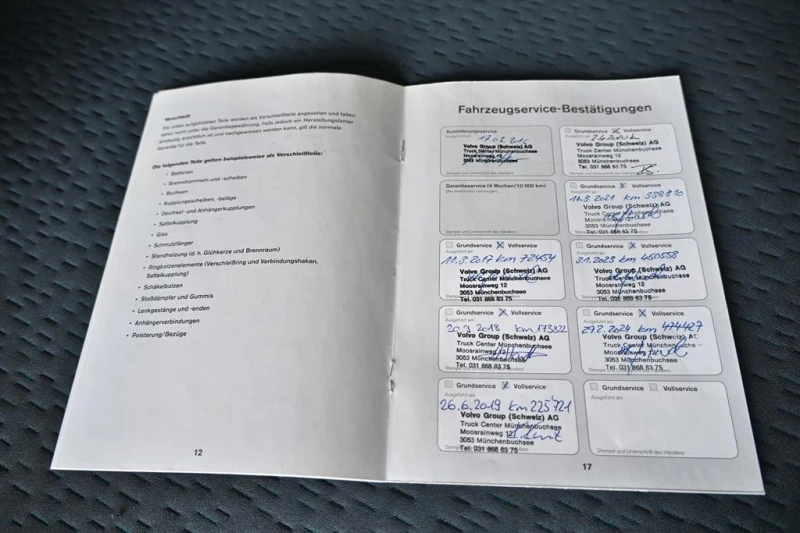 Verschleiß
Die unten aufgelisteten Teile werden als Verschleißteile angesehen und fallen
daher nicht unter die Garantiegewährung. Falls jedoch ein Herstellungsfehler
eindeutig ersichtlich ist und nachgewiesen werden kann, gilt die normale
Garantie für die Teile.
Die folgenden Teile gelten beispielsweise als Verschleißteile:
• Batterien
• Bremstrommeln und -scheiben
• Buchsen
• Kupplungsscheiben, -beläge
• Deichsel- und Anhängerkupplungen
• Sattelkupplung
• Glas
• Schmutzfänger
• Standheizung (d. h. Glühkerze und Brennraum)
• Ringbolzenelemente (Verschleißring und Verbindungshaken,
Sattelkupplung)
• Schäkelbolzen
• Stoßdämpfer und Gummis
• Lenkgestänge und -enden
• Anhängerverbindungen
• Polsterung/Bezüge
12
Fahrzeugservice-Bestätigungen
Auslieferungsservice
Ausgeführt am
Volvo Group (Schweiz) AG
Truck Center Münchenbuchsee
Moosrainweg 12
3053 Münchenbuchsee
Stempel und Unterschrift des Händlers
Garantieservice (4 Wochen/10 000 km)
Stempel und Unterschrift des Händlers
Grundservice X Vollservice
Ausgeführt am
11.8.2017 km 72454
Volvo Group (Schweiz) AG
Truck Center Münchenbuchsee
Moosrainweg 12
3053 Münchenbuchsee
Tel. 031 868 83 75
Grundservice X Vollservice
Ausgeführt am
2018 km 173822
Volvo Group (Schweiz) AG
Truck Center Münchenbuchsee
Moosrainweg 12
3053 Münchenbuchsee
Tel. 031 868 83 75
Grundservice X Vollservice
Ausgeführt am
26.6.2019 km 225'721
Volvo Group (Schweiz) AG
Truck Center Münchenbuchsee
Moosrainweg 12
3053 Münchenbuchsee
Tel. 031 868 83 75
Grundservice X Vollservice
Volvo Group (Schweiz) AG
Truck Center Münchenbuchsee
Moosrainweg 12
3053 Münchenbuchsee
Tel. 031 868 83 75
Grundservice X Vollservice
2021 km
Volvo Group (Schweiz) AG
Truck Center Münchenbuchsee
Moosrainweg 12
3053 Münchenbuchsee
Tel. 031 868 83 75
Grundservice X Vollservice
Ausgeführt am
2023 km 450558
Volvo Group (Schweiz) AG
Truck Center Münchenbuchsee
Moosrainweg 12
3053 Münchenbuchsee
Tel. 031 868 83 75
Grundservice X Vollservice
Ausgeführt am
2024 km 474427
Volvo Group (Schweiz) AG
Truck Center Münchenbuchsee
Moosrainweg 12
3053 Münchenbuchsee
Tel. 031 868 83 75
Grundservice Vollservice
Ausgeführt am
Stempel und Unterschrift des Händlers
17